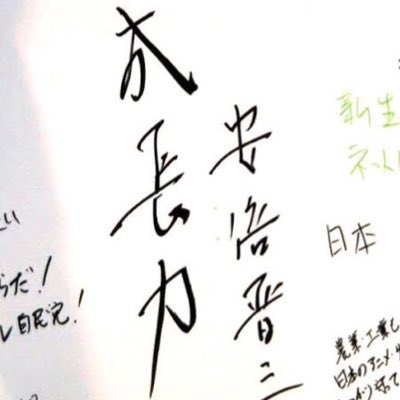 成長力
安倍晋三
新生
ネット
日本
農業・工業も
日本のアニメ・
らだ！
自民党！